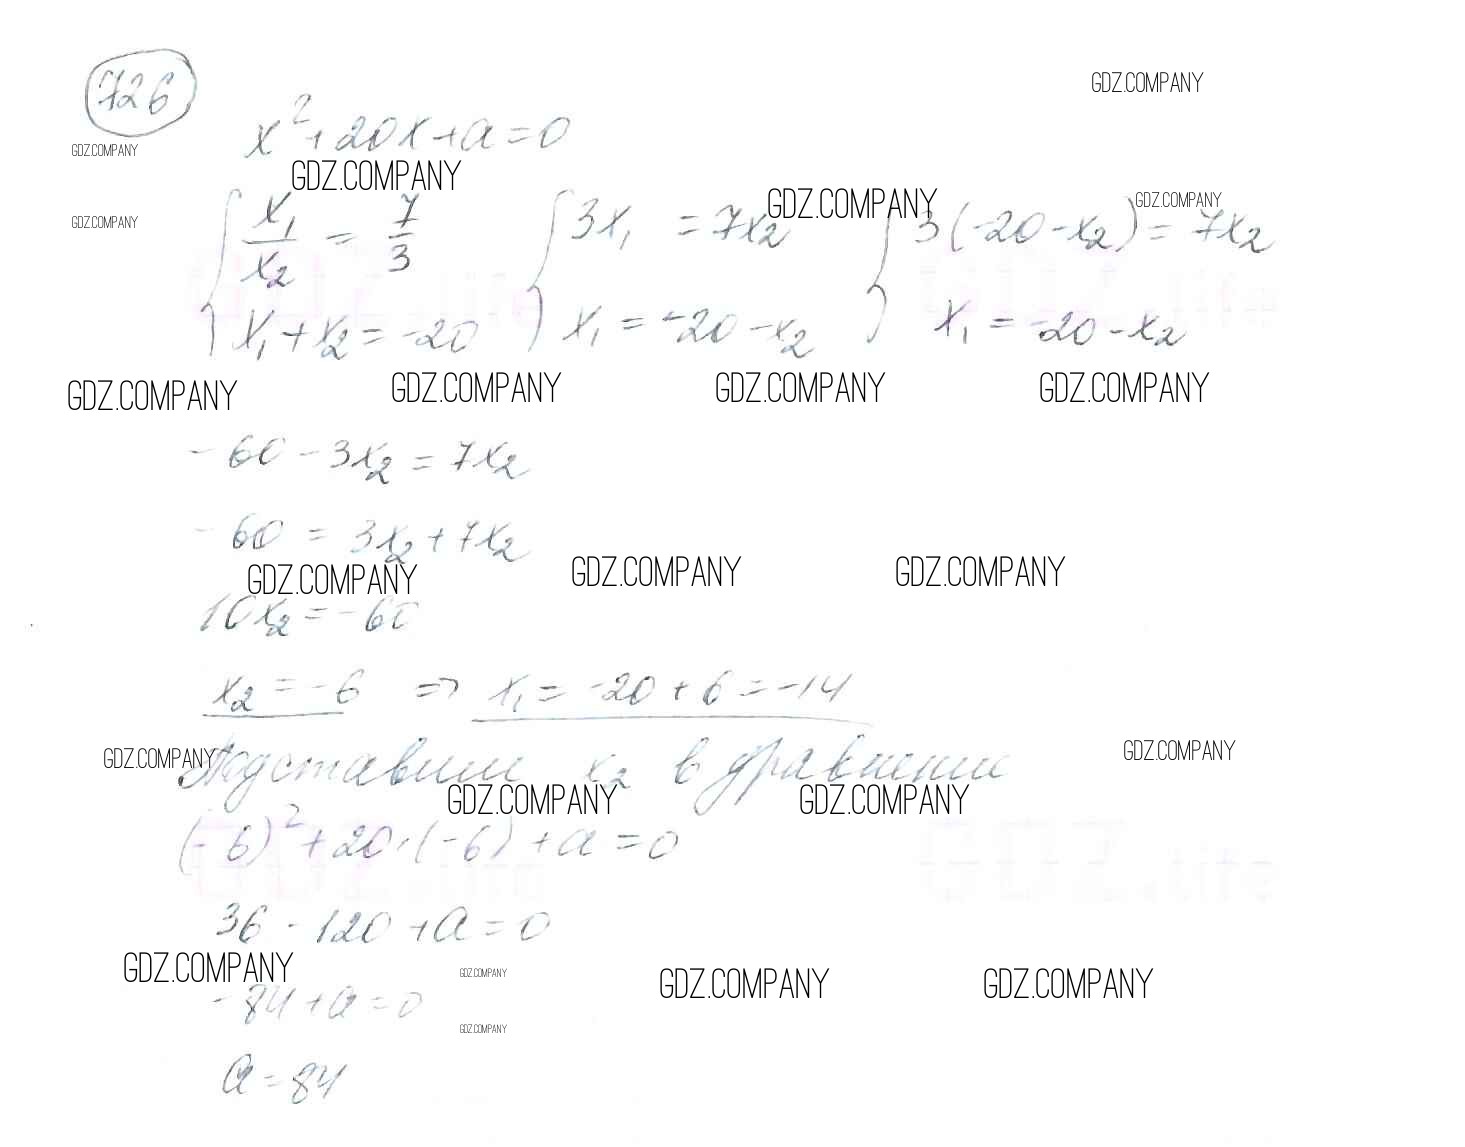 726
GDZ.COMPANY
x² + 20x + a = 0
GDZ.COMPANY
GDZ.COMPANY GDZ.COMPANY GDZ.COMPANY
GDZ.COMPANY
{ x₁/x₂ = 7/3 { 3x₁ = 7x₂ { 3(-20 - x₂) = 7x₂
x₁ + x₂ = -20 x₁ = -20 - x₂ x₁ = -20 - x₂
GDZ.COMPANY GDZ.COMPANY GDZ.COMPANY GDZ.COMPANY
-60 - 3x₂ = 7x₂
-60 = 3x₂ + 7x₂
GDZ.COMPANY GDZ.COMPANY GDZ.COMPANY
10x₂ = -60
x₂ = -6 => x₁ = -20 + 6 = -14
GDZ.COMPANY Подставим x₂ в уравнении GDZ.COMPANY
GDZ.COMPANY GDZ.COMPANY
(-6)² + 20·(-6) + a = 0
GDZ.life
36 - 120 + a = 0
GDZ.COMPANY GDZ.COMPANY GDZ.COMPANY GDZ.COMPANY
-84 + a = 0
GDZ.COMPANY
a = 84